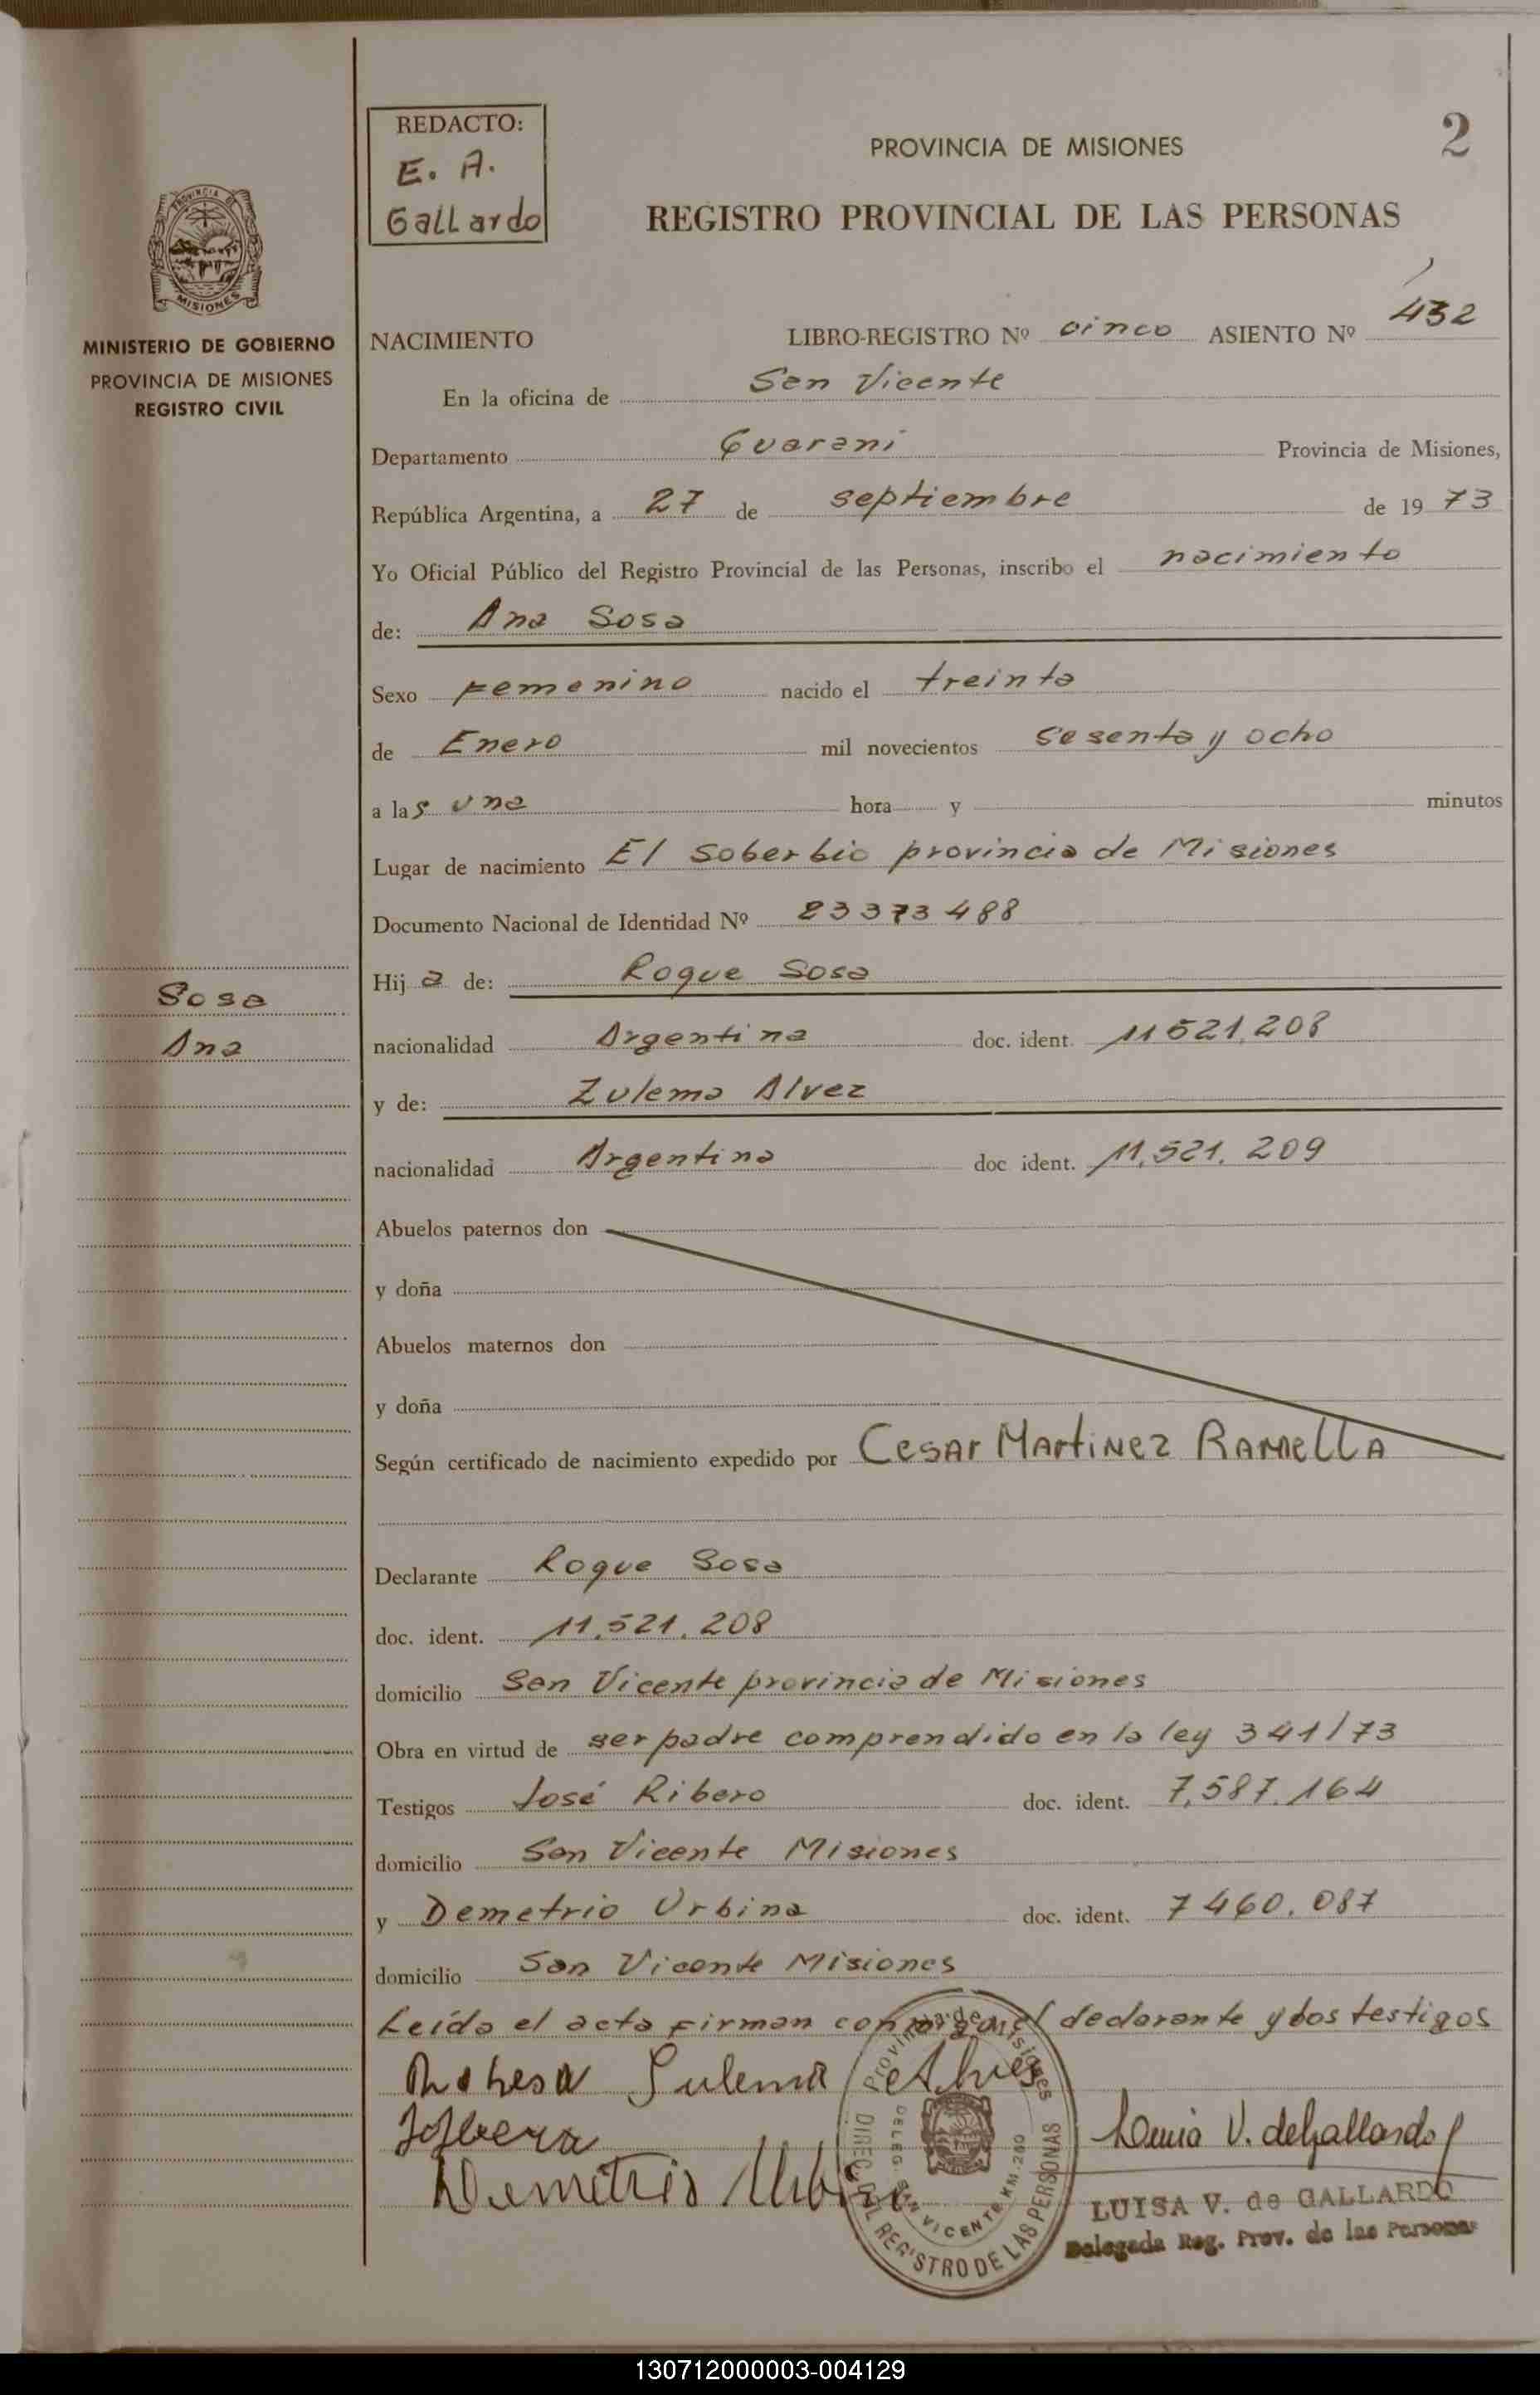 REDACTO:
E. A.
GalLardo
2
PROVINCIA DE MISIONES
REGISTRO PROVINCIAL DE LAS PERSONAS
PROVINCIA DE
MISIONES
MINISTERIO DE GOBIERNO
PROVINCIA DE MISIONES
REGISTRO CIVIL
NACIMIENTO LIBRO-REGISTRO Nº cinco ASIENTO Nº 432
En la oficina de San Vicente
Departamento Guarani Provincia de Misiones,
República Argentina, a 27 de septiembre de 1973
Yo Oficial Público del Registro Provincial de las Personas, inscribo el nacimiento
de: Ana Sosa
Sexo Femenino nacido el treinta
de Enero mil novecientos sesenta y ocho
a las una hora y minutos
Lugar de nacimiento El Soberbio provincia de Misiones
Documento Nacional de Identidad Nº 23373488
Hija de: Roque Sosa
Sosa
Ana
nacionalidad Argentina doc. ident. 11521.208
y de: Zulema Alvez
nacionalidad Argentina doc ident. 11.521.209
Abuelos paternos don
y doña
Abuelos maternos don
y doña
Según certificado de nacimiento expedido por Cesar Martinez Ramella
Declarante Roque Sosa
doc. ident. 11.521.208
domicilio San Vicente provincia de Misiones
Obra en virtud de ser padre comprendido en la ley 341/73
Testigos José Ribero doc. ident. 7.587.164
domicilio San Vicente Misiones
y Demetrio Urbina doc. ident. 7460.087
domicilio San Vicente Misiones
Leída el acta firman conmigo el declarante y dos testigos
Sulema Alves
Demetrio Urbina
Provincia de Misiones
DELEG. SAN VICENTE KM. 260
DIREC. DEL REGISTRO DE LAS PERSONAS
V. de Gallardo
LUISA V. de GALLARDO
Delegada Reg. Prov. de las Personas
130712000003-004129